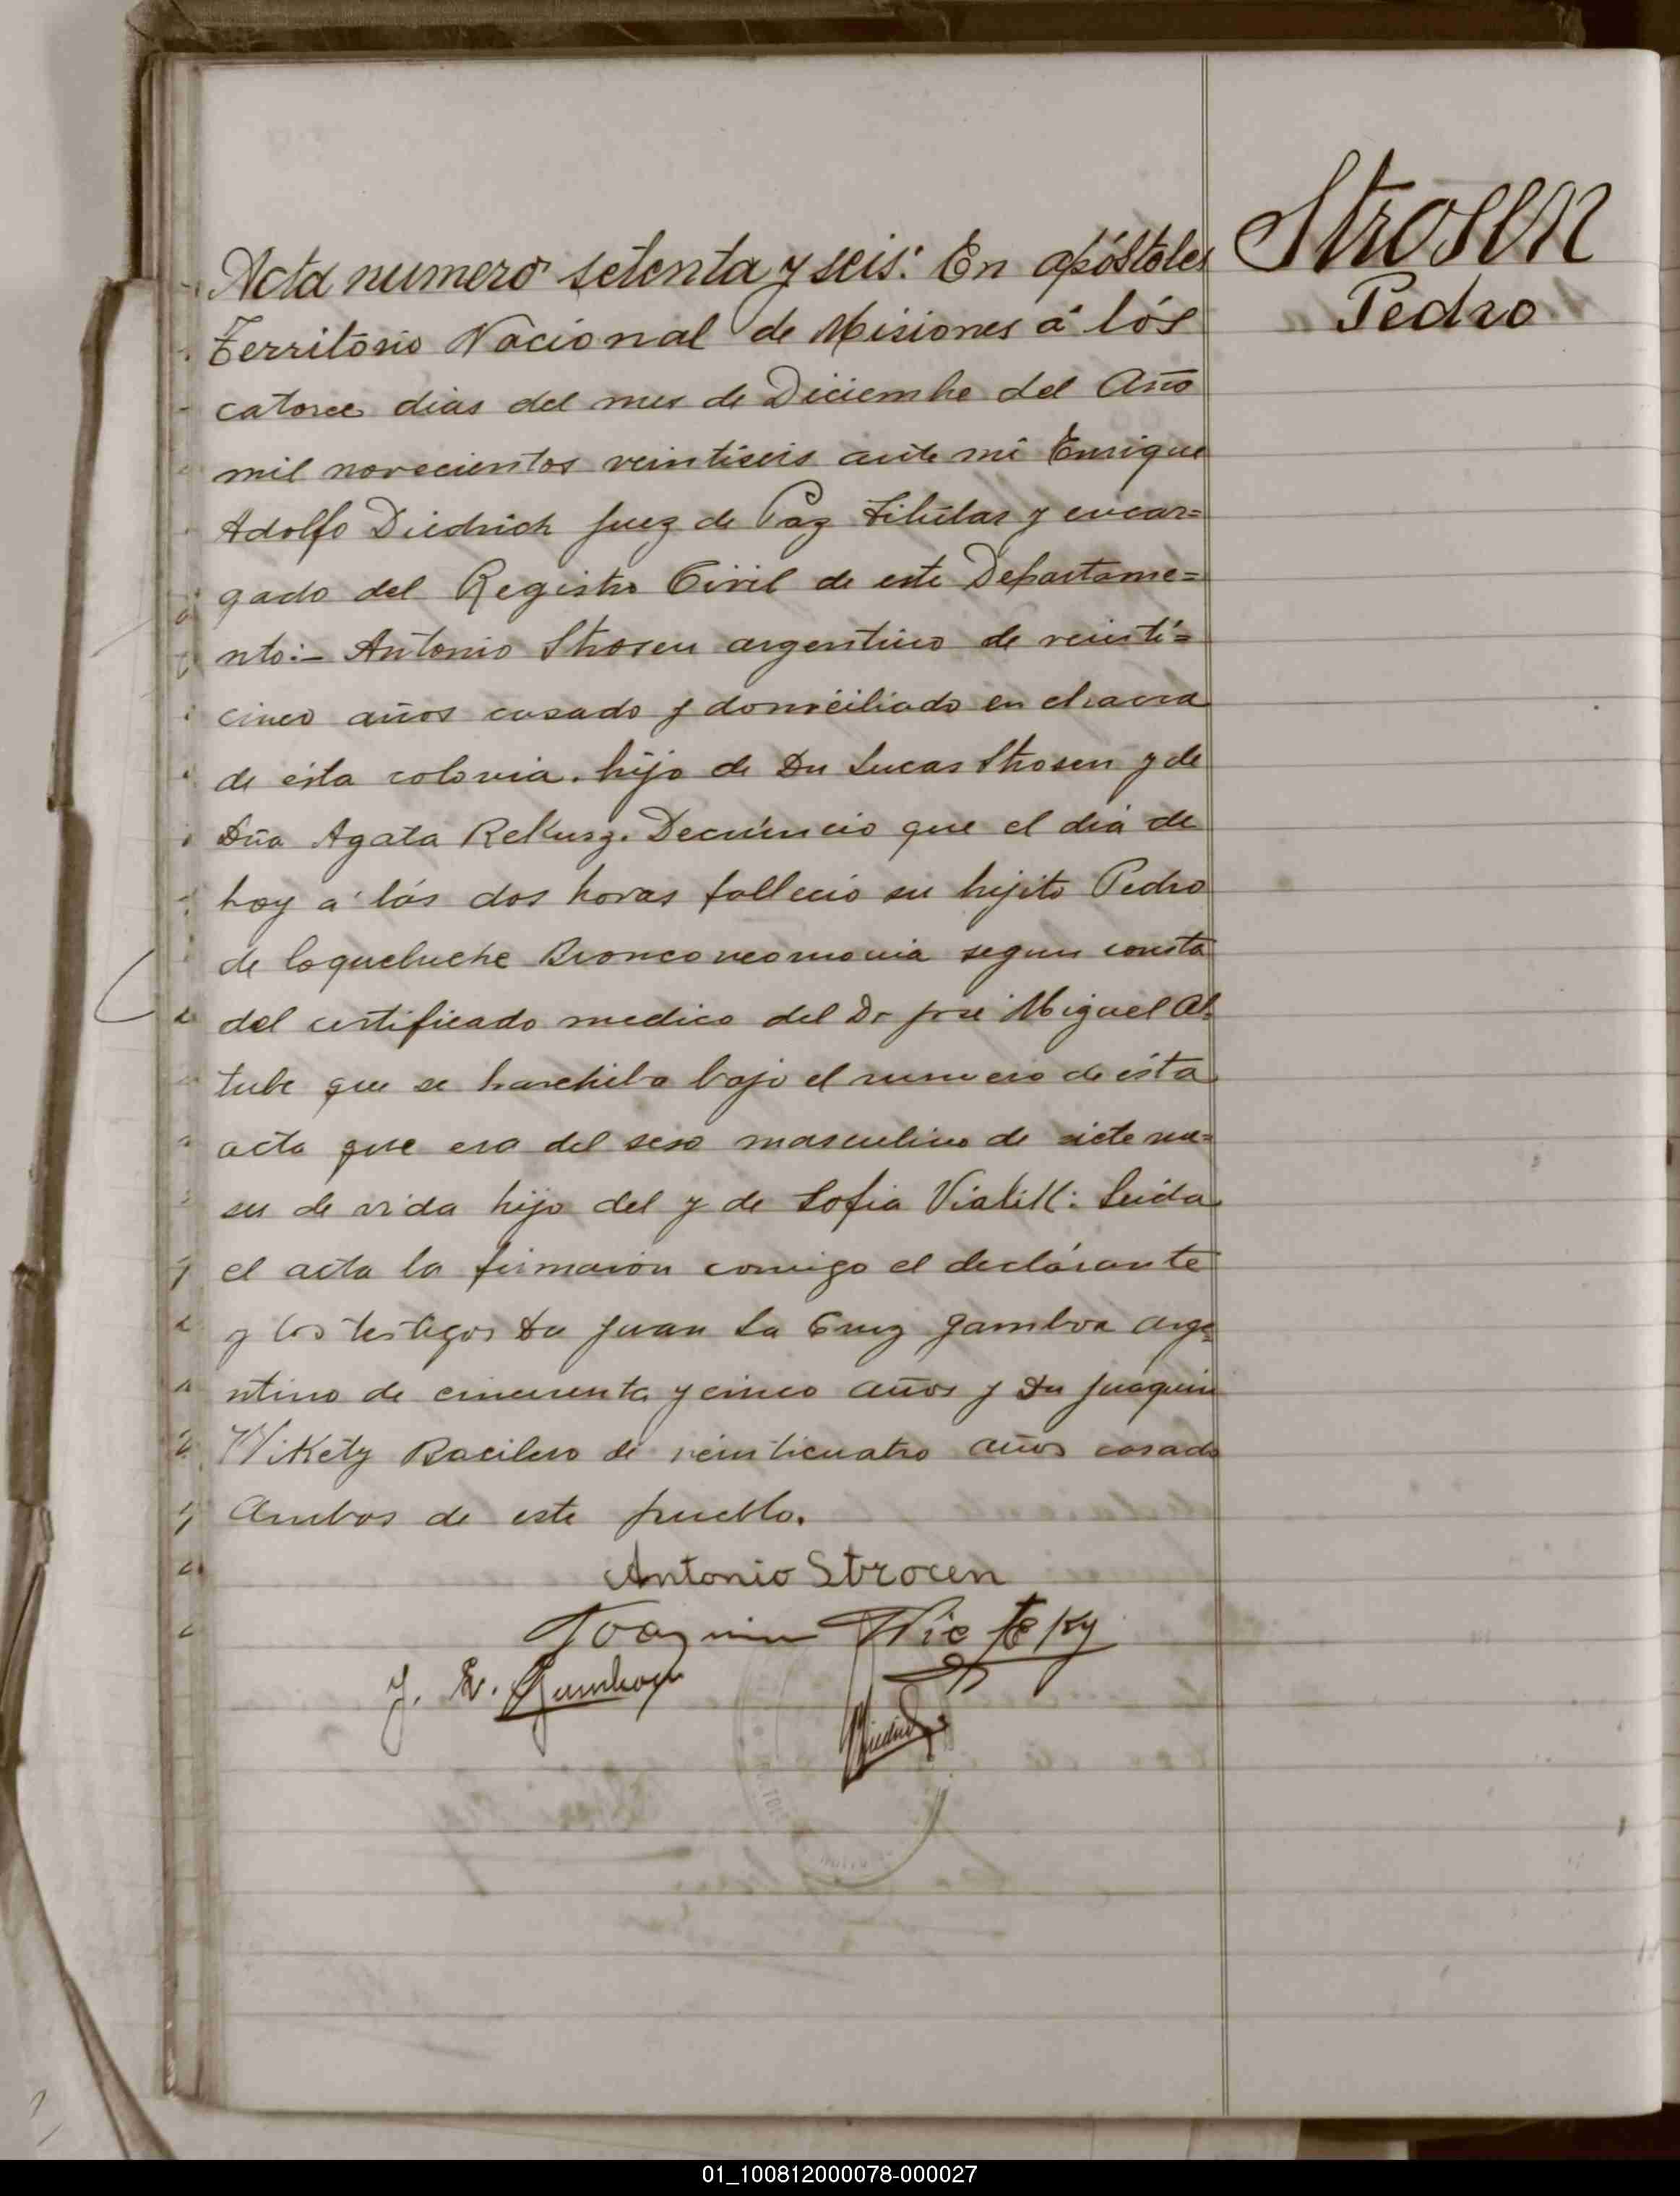 Strosen
Pedro
Acta numero setenta y seis: En apóstoles
Territorio Nacional de Misiones á lós
catorce dias del mes de Diciembre del Año
mil novecientos veintiseis ante mi Enrique
Adolfo Diedrich Juez de Paz Titular y encar=
gado del Registro Civil de este Departame=
nto:- Antonio Strosen argentino de veinti=
cinco años casado y domiciliado en chacra
de ésta colonia. hijo de Dn Lucas Strosen y de
Dña Agata Rekusz. Denúncio que el dia de
hoy a las dos horas fallecio su hijito Pedro
de Coqueluche Bronconeomonia segun consta
del certificado medico del Dr José Miguel Al=
tube que se harchiba bajo el numero de ésta
acta que era del sexo masculino de siete me=
ses de vida hijo del y de Sofia : Leida
el acta la firmaron comigo el declárante
y los testigos Dn Juan La Cruz Gamboa arge=
ntino de cincuenta y cinco años y Dn Juaquin
Wikety Bracilero de veinticuatro años casado
Ambos de este pueblo.
Antonio Strocen
Joaquin
J. Gamboa
01_100812000078-000027